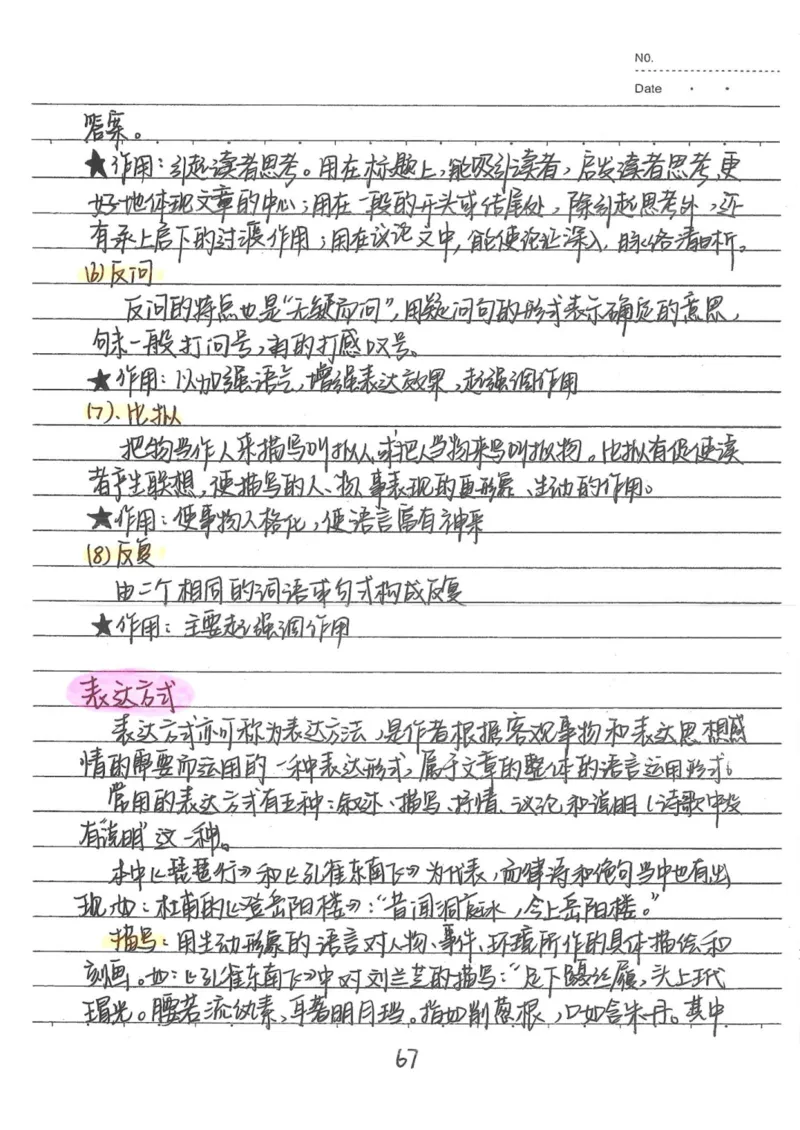 NO.
Date
答案。
★作用：引起读者思考。用在标题上，能吸引读者，启发读者思考，更
好地体现文章的中心；用在一段的开头或结尾处，除引起思考外，还
有承上启下的过渡作用；用在议论文中，能使论证深入，脉络清晰。
(6)反问
反问的特点也是“无疑而问”，用疑问句的形式表示确定的意思，
句末一般打问号，有的打感叹号。
★作用：以加强语气，增强表达效果，起强调作用
(7).比拟
把物当作人来描写叫拟人，或把人当物来写叫拟物。比拟有促使读
者产生联想，使描写的人、物、事表现的更形象、生动的作用。
★作用：使事物人格化，使语言富有神采
(8)反复
由二个相同的词语或句式构成反复
★作用：主要起强调作用
表达方式
表达方式亦可称为表达方法，是作者根据客观事物和表达思想感
情的需要而运用的一种表达形式，属于文章的整体的语言运用形式。
常用的表达方式有五种：叙述、描写、抒情、议论和说明（诗歌中没
有“说明”这一种。
本中《琵琶行》和《孔雀东南飞》为代表，而律诗和绝句当中也有出
现，如：杜甫的《登岳阳楼》：“昔闻洞庭水，今上岳阳楼。”
描写：用生动形象的语言对人物、事件、环境所作的具体描绘和
刻画。如：《孔雀东南飞》中对刘兰芝的描写：“足下蹑丝履，头上玳
瑁光。腰若流纨素，耳著明月珰。指如削葱根，口如含朱丹。其中
67